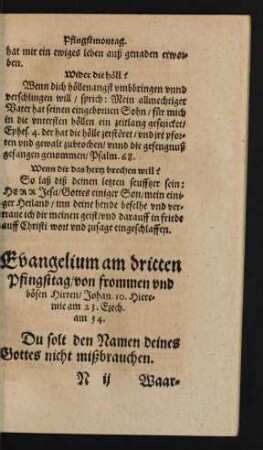 Pfingstmontag.
hat mir ein ewiges leben auß genaden erwor-
ben.
Wider die höll?
Wenn dich höllenangst vmbbringen vnnd
verschlingen will / sprich: Mein allmechtiger
Vater hat seinen eingebornen Sohn / für mich
in die vntersten höllen ein zeitlang gesendet /
Ephes. 4. der hat die hölle zerstöret / vnd jre pfor-
ten vnd gewalt zubrochen / vnnd die gefengnuß
gefangen genommen / Psalm. 68.
Wenn dir das hertz brechen will?
So laß diß deinen letzten seufftzer sein:
HERR Jesu / Gottes einiger Son / mein eini-
ger Heiland / inn deine hende befelhe vnd ver-
traue ich dir meinen geist / vnd darauff in friede
auff Christi wort vnd zusage eingeschlaffen.
Evangelium am dritten
Pfingsttag / von frommen vnd
bösen Hirten / Johan. 10. Hiere-
mie am 23. Ezech.
am 34.
Du solt den Namen deines
Gottes nicht mißbrauchen.
N ij Waar-